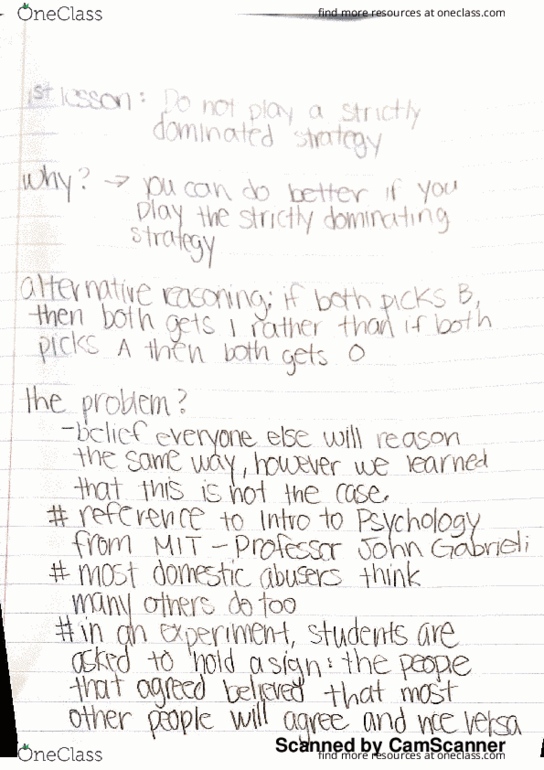 OneClass
find more resources at oneclass.com
1st lesson: Do not play a strictly
dominated strategy
why? → you can do better if you
play the strictly dominating
strategy
alternative reasoning: if both picks B,
then both gets 1 rather than if both
picks A then both gets 0
the problem?
-belief everyone else will reason
the same way, however we learned
that this is not the case.
# reference to Intro to Psychology
from MIT - Professor John Gabrieli
# most domestic abusers think
many others do too
# in an experiment, students are
asked to hold a sign: the people
that agreed believed that most
other people will agree and vice versa
Scanned by CamScanner
OneClass
find more resources at oneclass.com